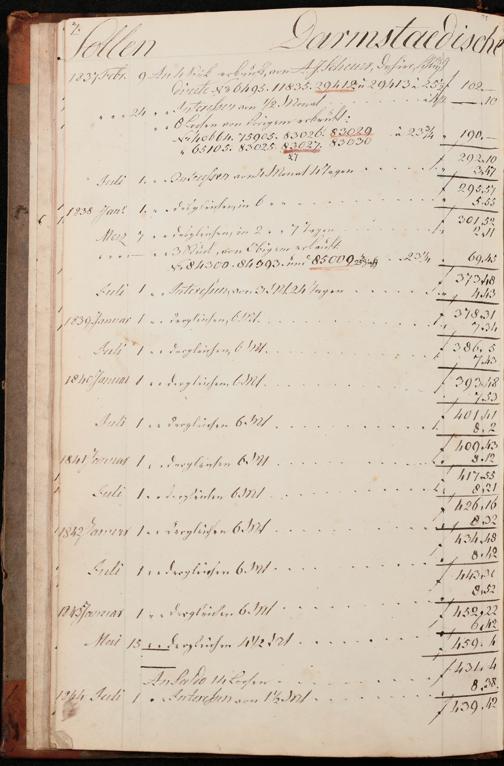 7.
Sollen Darmstaedische
1837 Febr. 9 An 4 Stück erkauft, von A.
No 6495. 11835. 29412 u 29413 a 25½ f 102.—
" " " 24 " " Interessen von ½ Monat —.10
" " 6 Loosen von Obigem erkauft:
No 40664. 75905. 83026. 83029 a 23¾ " 190.—
" 65105. 83025. 83027. 83030
27
f 292.10
Juli 1 " " Interessen von 4 Monat 4 Tagen " 3.47
f 295.57
1838 Janr 1 " " dergleichen, in 6 " " 5.55
f 301.52
Merz 7 " " dergleichen, in 2 " " 7 Tagen " 2.11
" " 3 Stück, von Obigem erkauft
No 84300. 84393. und 85009 " 69.45
f 373.48
Juli 1 " " Interessen, von 3 Mt 24 Tagen " 4.43
f 378.31
1839 Januar 1 " " dergleichen, 6 Mt " 7.34
f 386.5
Juli 1 " " dergleichen, 6 Mt. " 7.43
f 393.48
1840 Januar 1 " " dergleichen, 6 Mt " 7.53
f 401.41
Juli 1 " " dergleichen 6 Mt " 8.2
f 409.43
1841 Januar 1 " " dergleichen 6 Mt " 8.12
f 417.55
Juli 1 " " dergleichen 6 Mt " 8.21
f 426.16
1842 Januar 1 " " dergleichen 6 Mt " 8.32
f 434.48
Juli 1 " " dergleichen 6 Mt " 8.42
f 443.30
8.52
1843 Januar 1 " " dergleichen 6 Mt f 452.22
" 6.42
Mai 15 " " dergleichen 4½ Mt f 459.4
f 431.4
An Saldo 14 Loosen
8.38
1844 Juli 1 " " Interessen von 1½ Mt f 439.42